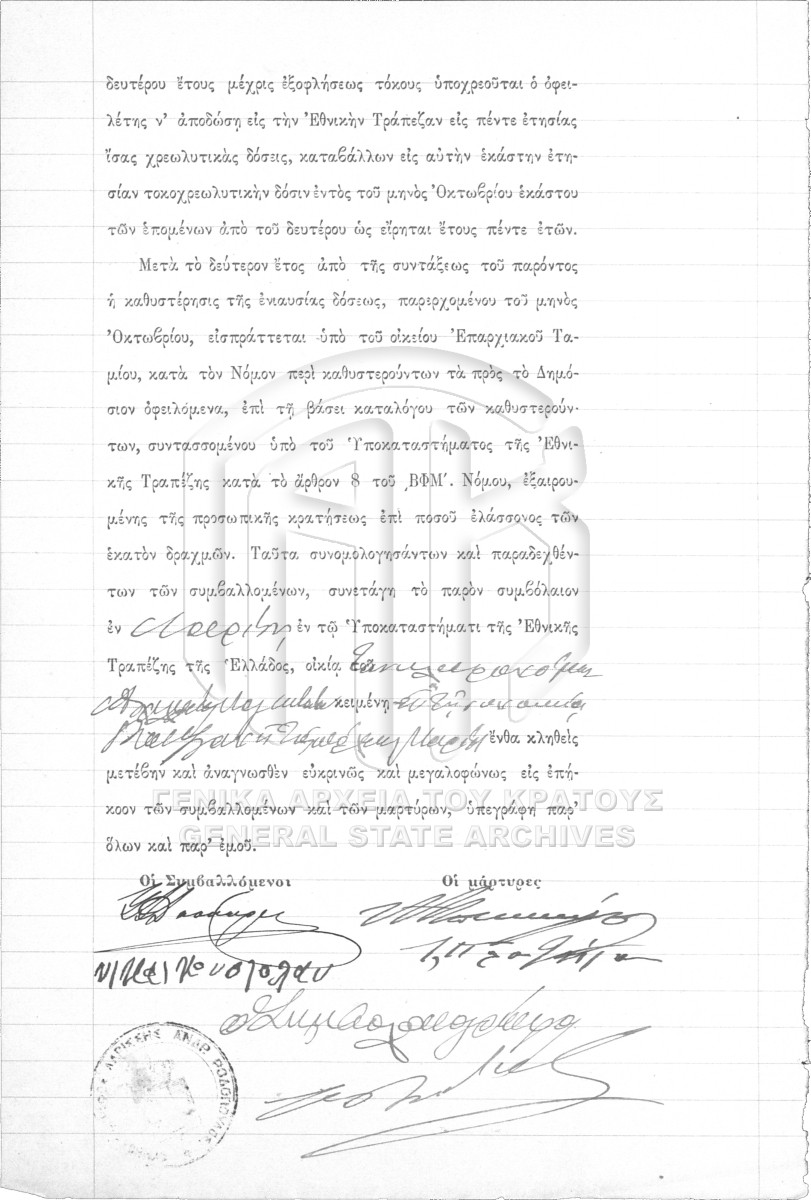 δευτέρου ἔτους μέχρις ἐξοφλήσεως τόκους ὑποχρεοῦται ὁ ὀφει-
λέτης ν' ἀποδώσῃ εἰς τὴν Ἐθνικὴν Τράπεζαν εἰς πέντε ἐτησίας
ἴσας χρεωλυτικὰς δόσεις, καταβάλλων εἰς αὐτὴν ἑκάστην ἐτη-
σίαν τοκοχρεωλυτικὴν δόσιν ἐντὸς τοῦ μηνὸς Ὀκτωβρίου ἑκάστου
τῶν ἑπομένων ἀπὸ τοῦ δευτέρου ὡς εἴρηται ἔτους πέντε ἐτῶν.
Μετὰ τὸ δεύτερον ἔτος ἀπὸ τῆς συντάξεως τοῦ παρόντος
ἡ καθυστέρησις τῆς ἐνιαυσίας δόσεως, παρερχομένου τοῦ μηνὸς
Ὀκτωβρίου, εἰσπράττεται ὑπὸ τοῦ οἰκείου Ἐπαρχιακοῦ Τα-
μίου, κατὰ τὸν Νόμον περὶ καθυστερούντων τὰ πρὸς τὸ Δημό-
σιον ὀφειλόμενα, ἐπὶ τῇ βάσει καταλόγου τῶν καθυστερούν-
των, συντασσομένου ὑπὸ τοῦ Ὑποκαταστήματος τῆς Ἐθνι-
κῆς Τραπέζης κατὰ τὸ ἄρθρον 8 τοῦ ͵ΒΦΜ'. Νόμου, ἐξαιρου-
μένης τῆς προσωπικῆς κρατήσεως ἐπὶ ποσοῦ ἐλάσσονος τῶν
ἑκατὸν δραχμῶν. Ταῦτα συνομολογησάντων καὶ παραδεχθέν-
των τῶν συμβαλλομένων, συνετάγη τὸ παρὸν συμβόλαιον
ἐν Λαρίσῃ ἐν τῷ Ὑποκαταστήματι τῆς Ἐθνικῆς
Τραπέζης τῆς Ἑλλάδος, οἰκίᾳ
κειμένῃ
ἔνθα κληθεὶς
μετέβην καὶ ἀναγνωσθὲν εὐκρινῶς καὶ μεγαλοφώνως εἰς ἐπή-
κοον τῶν συμβαλλομένων καὶ τῶν μαρτύρων, ὑπεγράφη παρ'
ὅλων καὶ παρ' ἐμοῦ.
ΓΕΝΙΚΑ ΑΡΧΕΙΑ ΤΟΥ ΚΡΑΤΟΥΣ
GENERAL STATE ARCHIVES
Οἱ Συμβαλλόμενοι Οἱ μάρτυρες